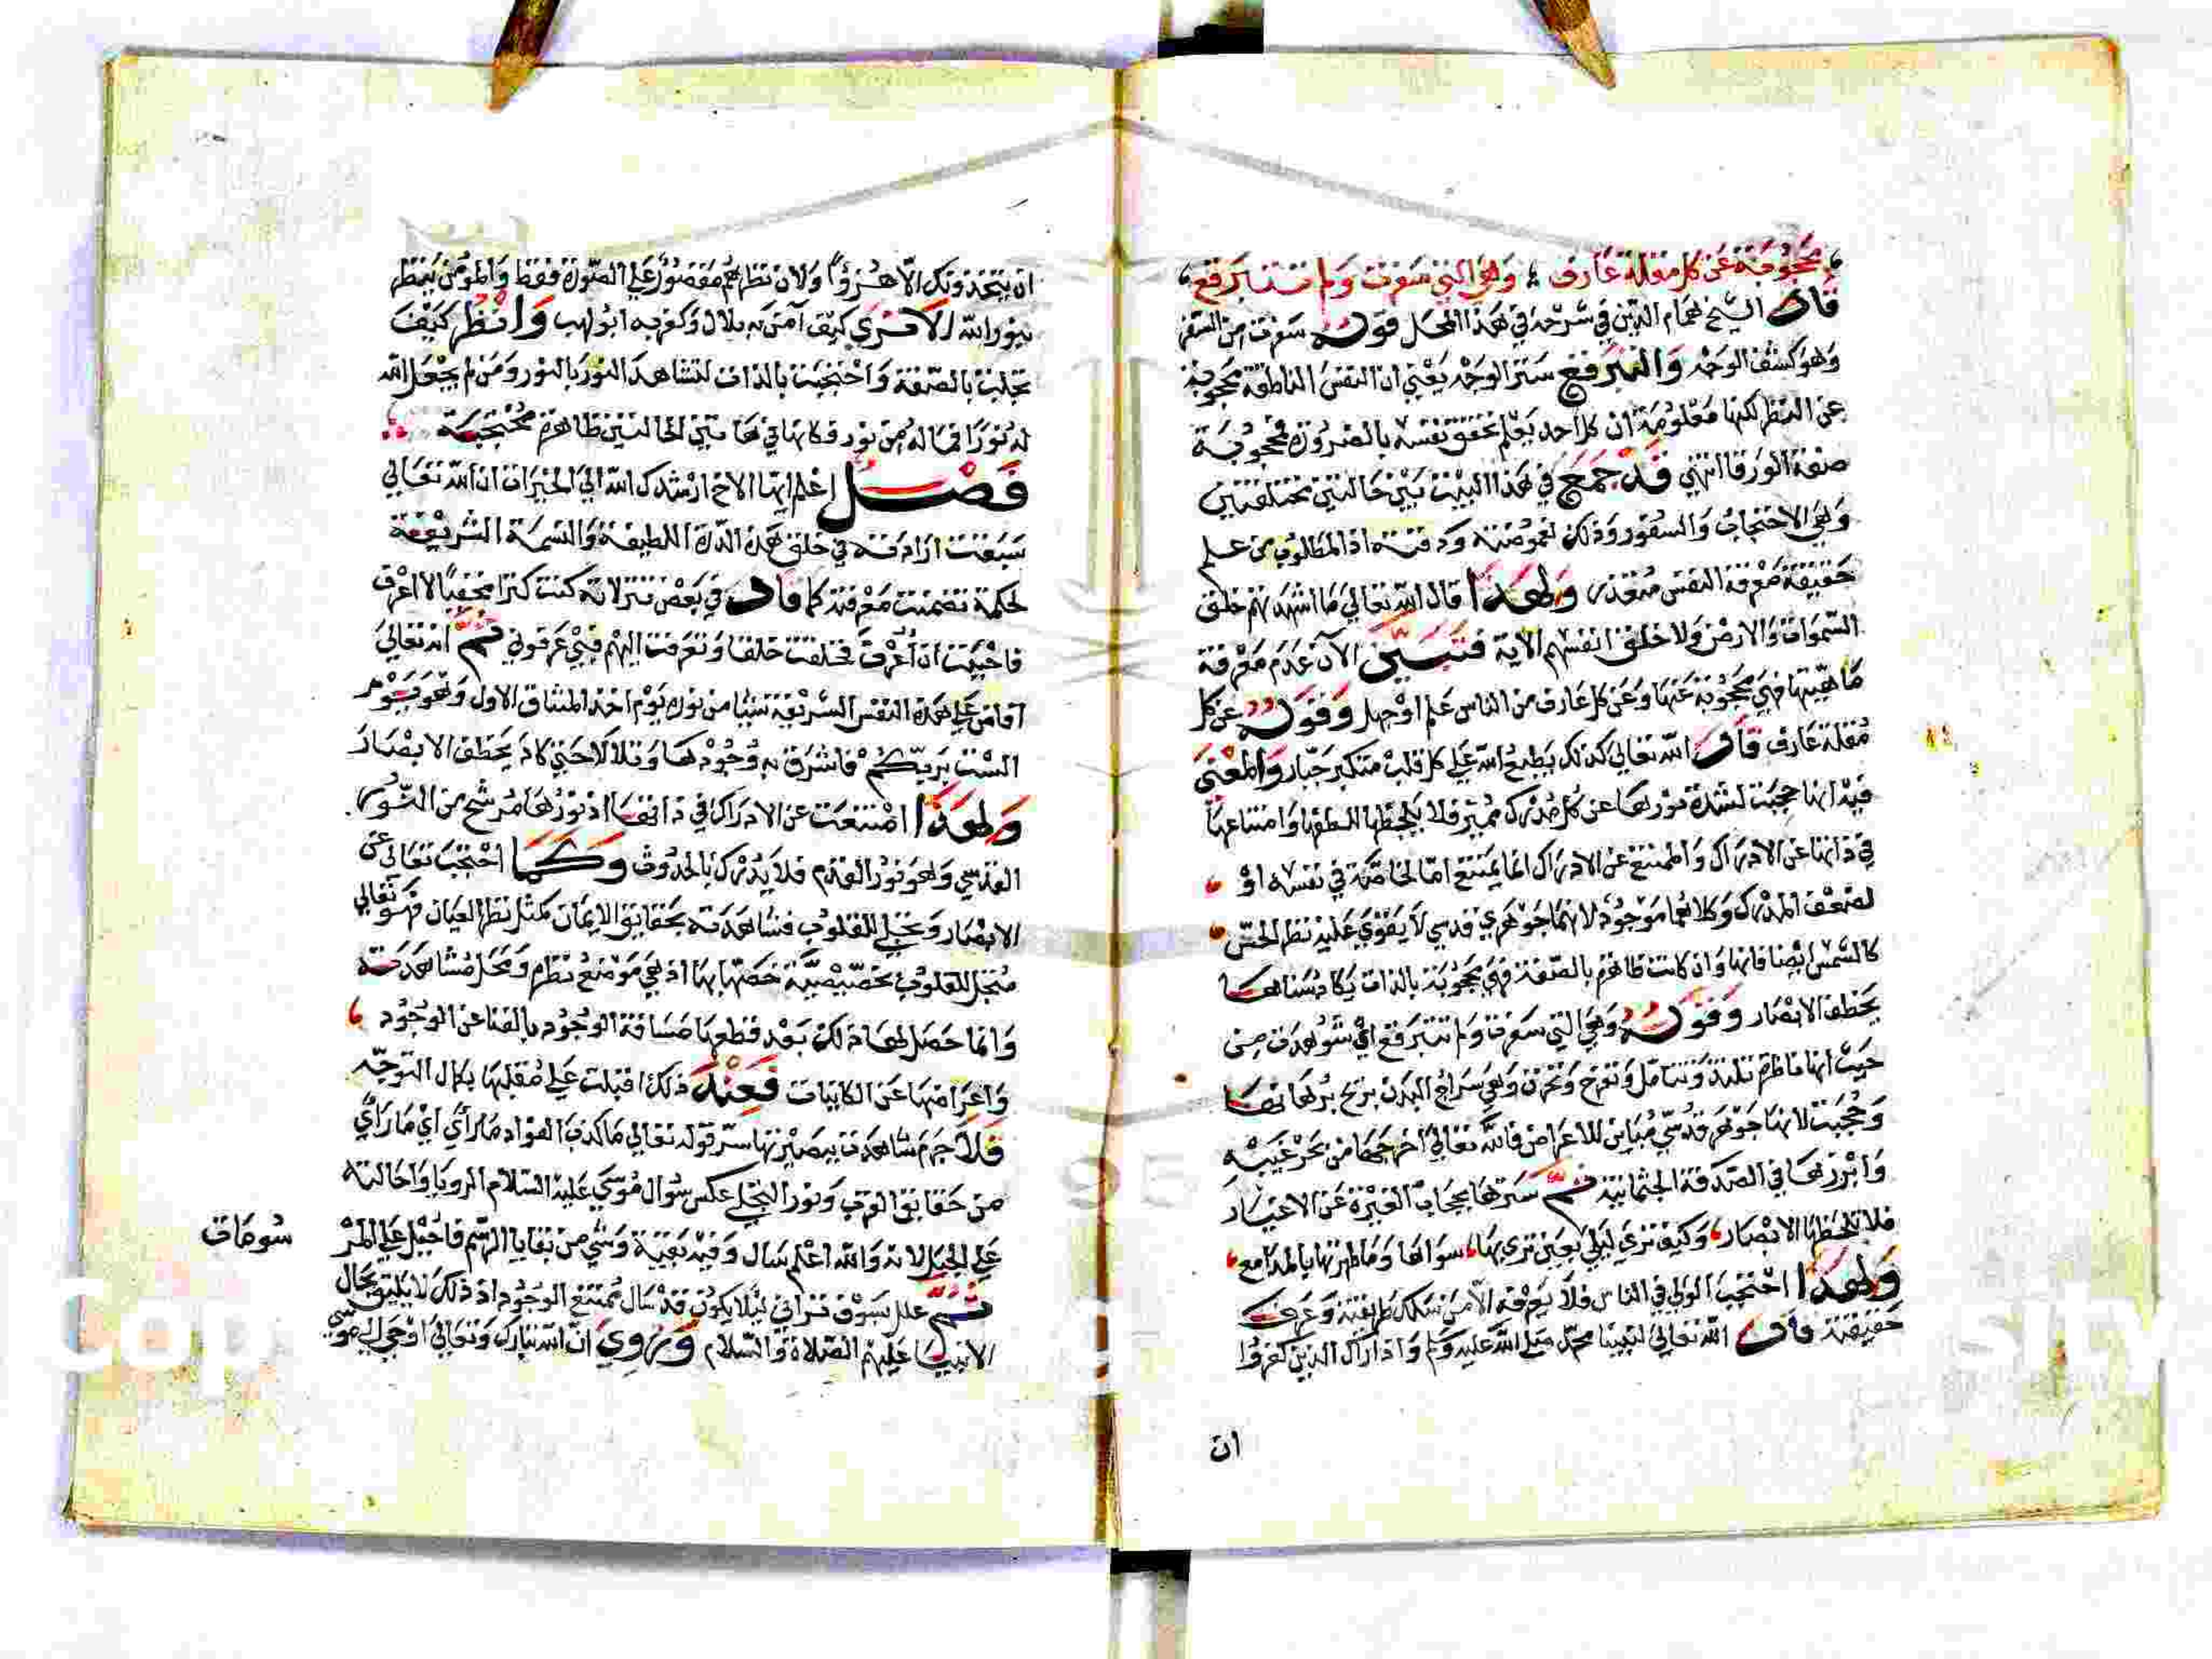 محجوبة عن كل مقلة عارف وهي التي سفرت ولم تتبرقع
قال الشيخ همام الدين في شرحه في هذا المحل قوله سفرت من السفر
وهو كشف الوجه والتبرقع ستر الوجه يعني ان النفس الناطقة محجوبة
عن النظر لكنها معلومة ان كل احد يعلم تحقق نفسه بالضرورة محجوبة
صفة الورقا انتهي قد جمع في هذا البيت بين حالتين مختلفتين
وهي الاحتجاب والسفور وذلك لغموضته ودقته اذ المطلوب من علم
حقيقة معرفة النفس متعذر ولهذا قال الله تعالي ما اشهدتهم خلق
السموات والارض ولا خلق انفسهم الاية فتبين الآن عدم معرفة
ماهيتها فهي محجوبة عنها وعن كل عارف من الناس علم او جهل وقوله عن كل
مقلة عارف قال الله تعالي كذلك يطبع الله علي كل قلب متكبر جبار والمعني
فيه انها حجبت لشدة نورها عن كل مدرك مميز فلا يلحظها للطفها وامتناعها
في ذاتها عن الادراك والممتنع عن الادراك انما يمتنع اما لخاصة في نفسه او
لضعف المدرك وكلاهما موجود لانها جوهري قدسي لا يقوي عليه نظر الحس
كالشمس ايضا فانها وان كانت ظاهرة بالصفة فهي محجوبة بالذات يكاد سناها
يخطف الابصار وقوله وهي التي سفرت ولم تتبرقع اي شوهدت من
حيث انها ناظرة تلتذ وتتامل وتفرح وتحزن وهي سراج البدن بزيح برهانها
وحجبت لانها جوهر قدسي مباين للاعراض فالله تعالي اخرجها من بحر غيبه
وابرزها في الصدفة الجثمانية ثم سترها بحجاب الغيرة عن الاغيار
فلا تلحظها الابصار وكيف تري ليلي بعين تري بها سواها وما طهرتها بالمدامع
ولهذا احتجب الولي في الناس فلا يعرفه الا من سلك طريقته وعرف
حقيقته قال الله تعالي لنبينا محمد صلي الله عليه وسلم واذا راك الذين كفروا
ان
ان يتخذونك الا هزوا ولان نظرهم مقصور علي الصورة فقط والمومن ينظر
بنور الله الا تري كيف آمن به بلال وكفر به ابو لهب وانظر كيف
تجلت بالصفة واحتجبت بالذات لتشاهد النور بالنور ومن لم يجعل الله
له نورا فما له من نور فكانها في هاتين الحالتين ظاهرة محتجبة
فصل اعلم ايها الاخ ارشدك الله الي الخيرات ان الله تعالي
سبقت ارادته في خلق هذه الذرة اللطيفة والنسمة الشريفة
لحكمة تضمنت معرفته كما قال في بعض تنزلاته كنت كنزا مخفيا لا اعرف
فاحببت ان أعرف فخلقت خلقا وتعرفت اليهم فبي عرفوني ثم انه تعالي
آفاض علي هذه النفس الشريفة شيئا من نوره يوم اخذ الميثاق الاول وهو يوم
الست بربكم فاشرق به وجودها وتلالا حتي كاد يخطف الابصار
ولهذا امتنعت عن الادراك في ذاتها اذ نورها مرشح من النور
القدسي وهو نور القدم فلا يدرك بالحدوث وكما احتجب تعالي عن
الابصار وتجلي للقلوب فشاهدته بحقايق الايمان كمثل نظر العيان فهو تعالي
متجل للقلوب بخصيصية خصها بها اذ هي موضع نظره ومحل مشاهدته
وانما حصل لها ذلك بعد قطعها مسافة الوجود بالفنا عن الوجود
واعراضها عن الكاينات فعند ذلك اقبلت علي مقلبها بكمال التوجه
فلا جرم شاهدت ببصيرتها سر قوله تعالي ما كذب الفواد ما راي اي ما راي
من حقايق القرب ونور التجلي عكس سوال موسي عليه السلام الرويا واحالته
علي الجبل لانه والله اعلم سال وفيه بقية وشي من بقايا الرسم فاحيل علي المر
ثم علل بسوف تراني ليلا يكون قد سال ممتنع الوجود اذ ذلك لا يليق بحال
الانبيا عليهم الصلاة والسلام وروي ان الله تبارك وتعالي اوحي الي موسي